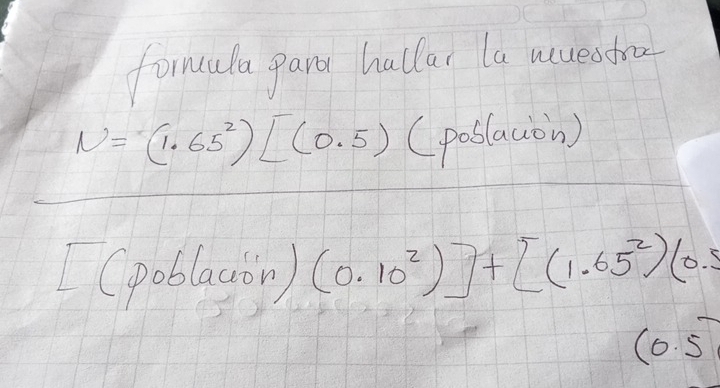 formula para hallar la muestra
N = (1.65²) [(0.5) (población)
[(población) (0.10²)] + [(1.65²)(0.5
(0.5)